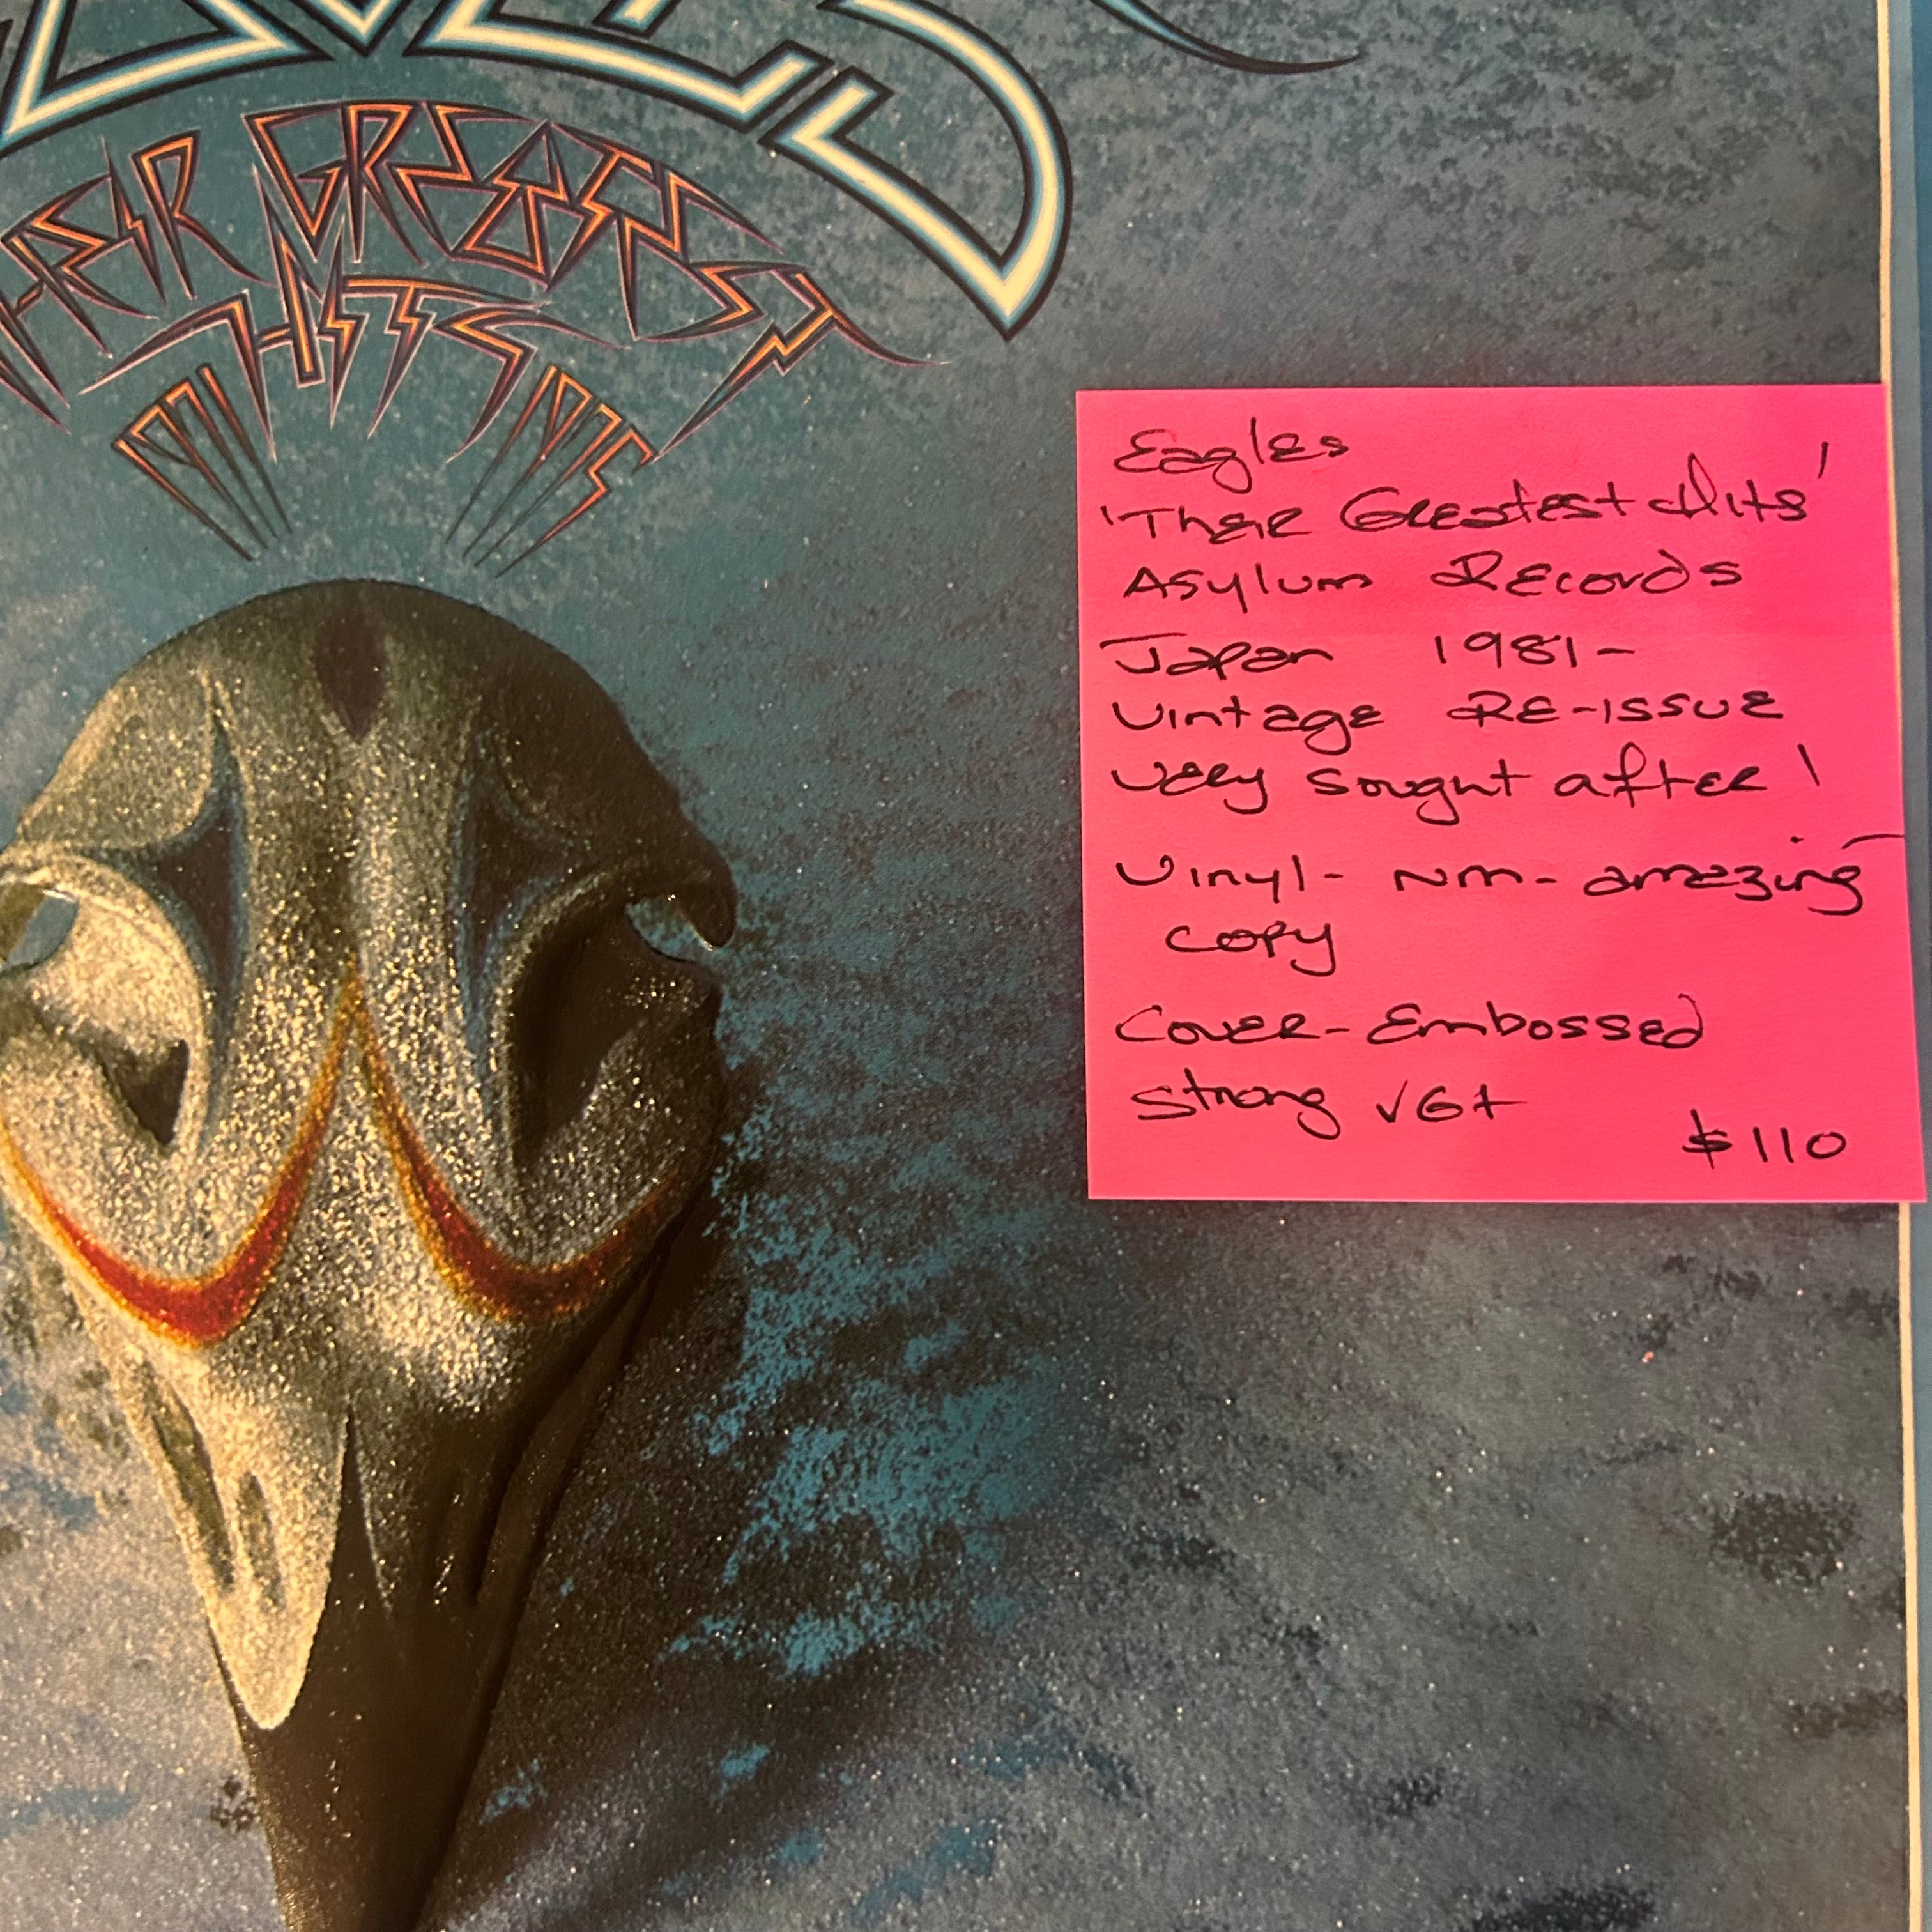 EAGLES
THEIR GREATEST
HITS
1971 1975
Eagles
'Their Greatest Hits'
Asylum Records
Japan 1981-
Vintage RE-ISSUE
Very sought after!
Vinyl- NM- amazing
copy
Cover- Embossed
Strong VG+
$110